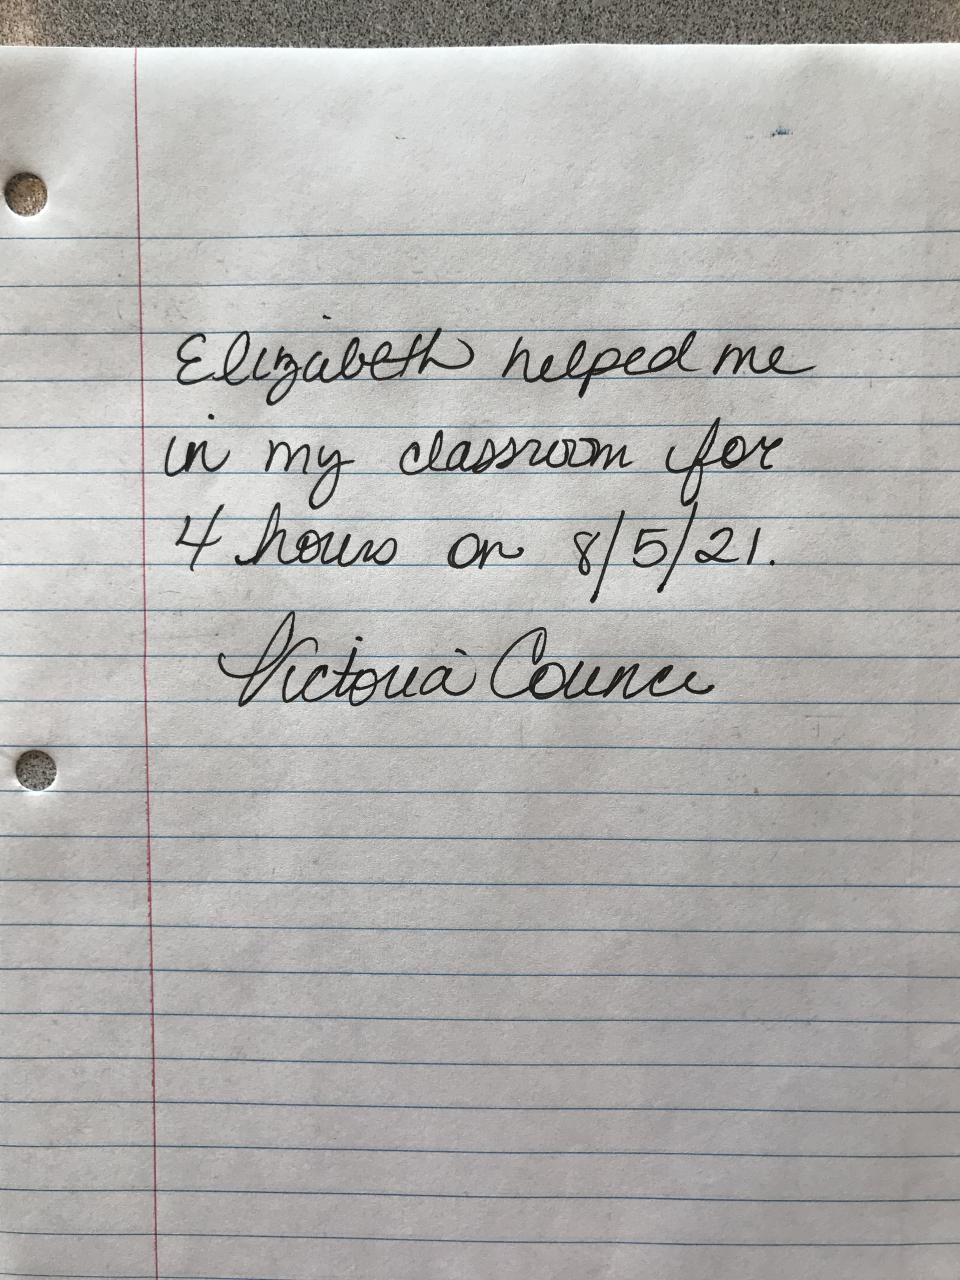 Elizabeth helped me
in my classroom for
4 hours on 8/5/21.
Victoria